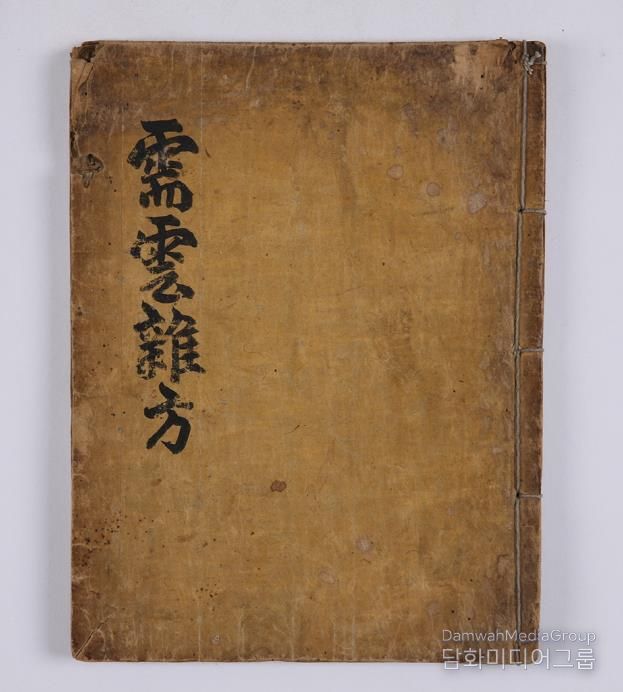 需雲雜方
DamwahMediaGroup
담화미디어그룹